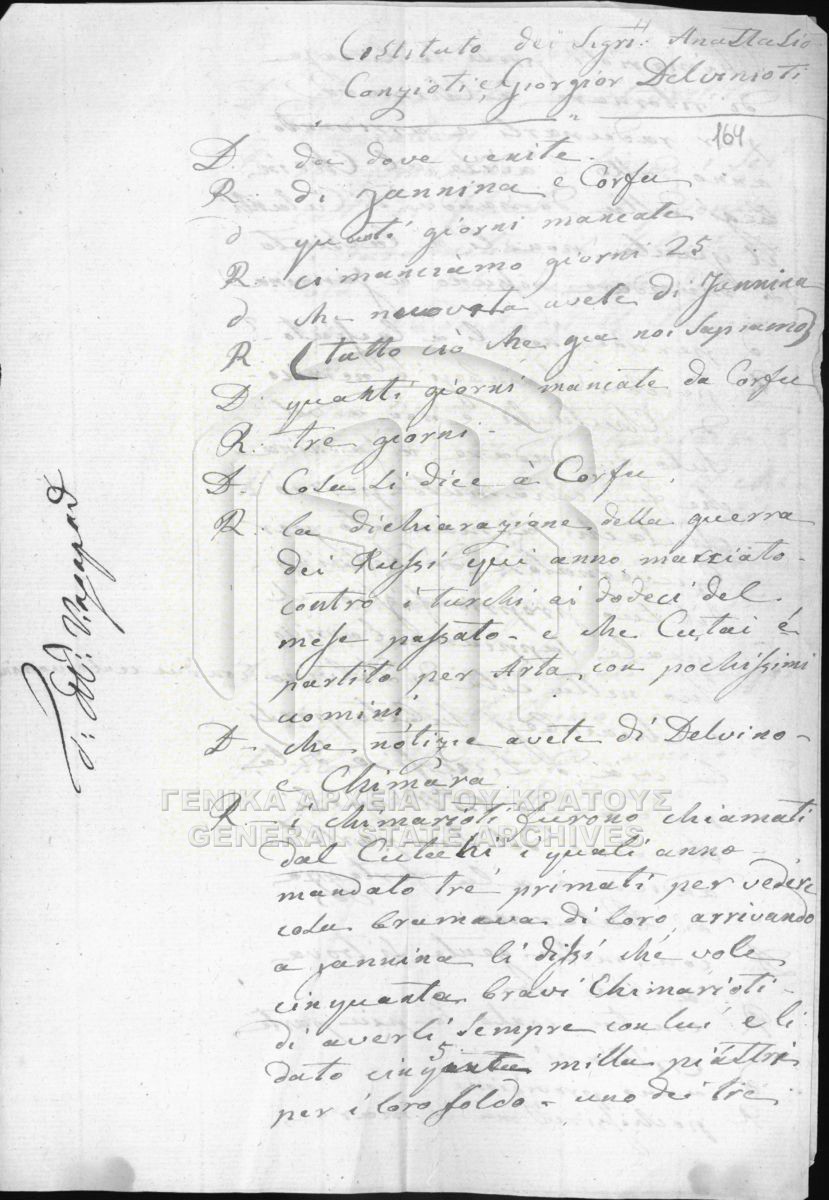 Costituto dei Sigri. Anastasio
Canzioti, e Giorgior Delvinioti
164
D. da dove venite.
R. di Jannina e Corfu
d quanti giorni mancate
R. ci manciamo giorni 25
d che nuovita avete di Jannina
R. (tutto ciò che gia noi sapiamo)
D. quanti giorni mancate da Corfu
R. tre giorni
D. Cosa si dice à Corfu.
R. la dichiarazione della guerra
dei Russi qui anno marciato
contro i turchi ai dodeci del
mese passato - e che Cutai é
partito per Arta, con pochissimi
uomini
D. che notizie avete di Delvino
e Chimara
R. i chimarioti furono chiamati
dal Cutahi i quali anno
mandato tré primati per vedere
cosa bramava di loro arrivando
a Jannina li dissi ché vole
cinquanta bravi Chimarioti
di averli sempre con lui e li
dato milla piastri
per i loro soldo - uno dei tre
ΓΕΝΙΚΑ ΑΡΧΕΙΑ ΤΟΥ ΚΡΑΤΟΥΣ
GENERAL STATE ARCHIVES